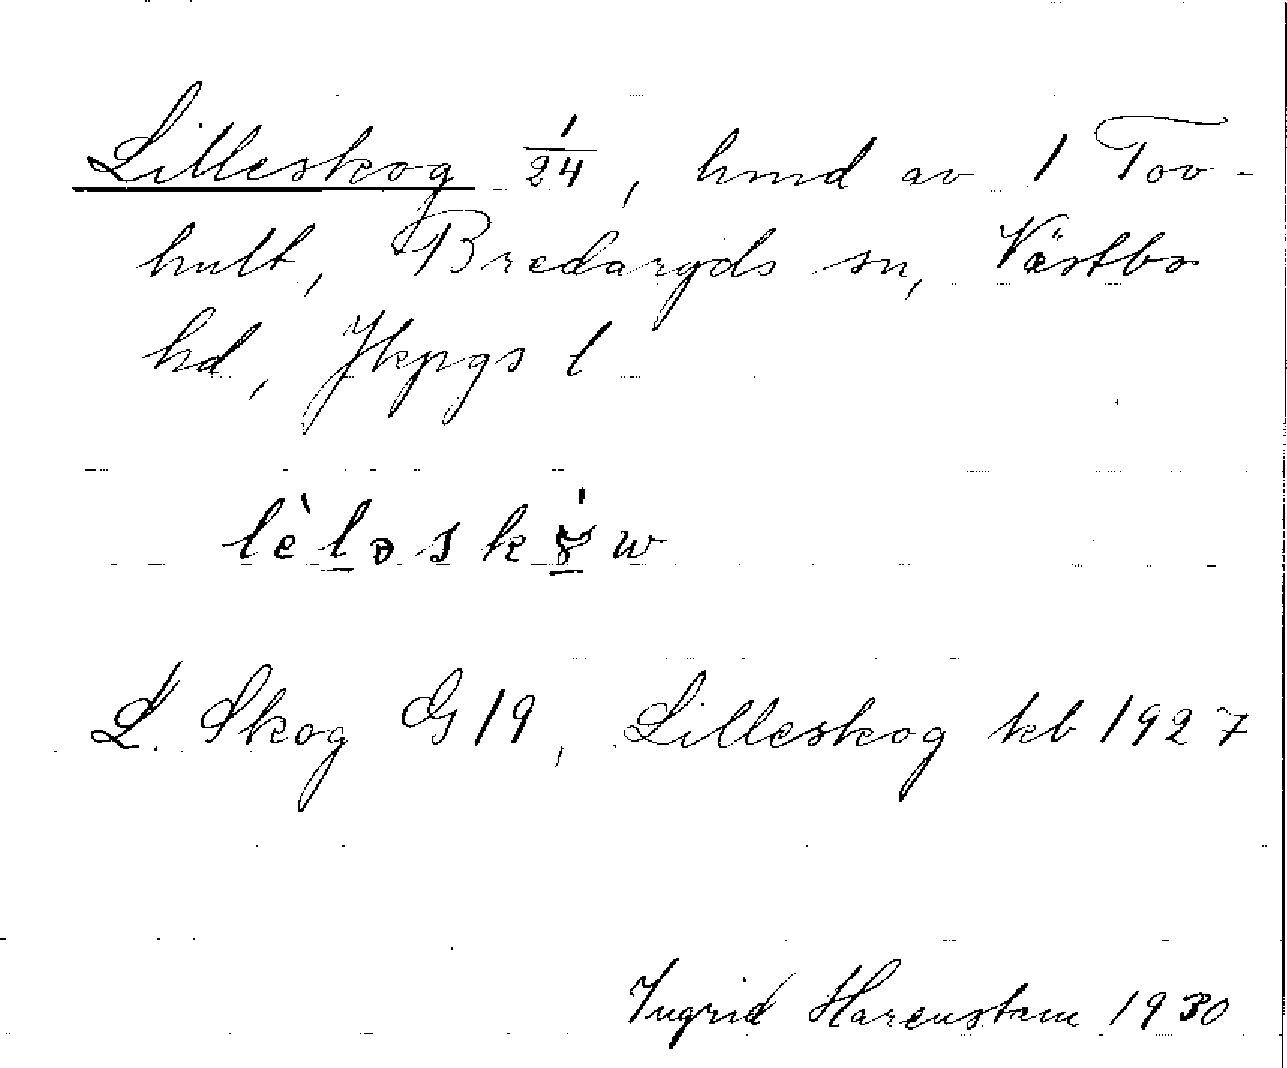 Lilleskog 1/24, hmd av 1 Tov-
hult, Bredaryds sn, Västbo
hd, Jkpgs l
L. Skog G19, Lilleskog kb 1927
Ingrid Harenstam 1930